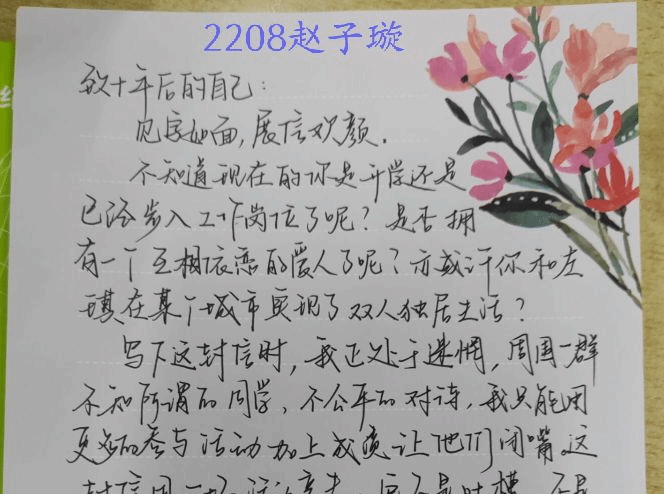 2208赵子璇
致十年后的自己:
见字如面,展信欢颜.
不知道现在的你是升学还是
已经步入工作岗位了呢?是否拥
有一个互相依恋的爱人了呢?亦或许你和左
琪在某个城市实现了双人独居生活?
写下这封信时,我正处于迷惘,周围一群
不知所谓的同学,不公平的对待,我只能用
更多的参与活动加上成绩让他们闭嘴.这